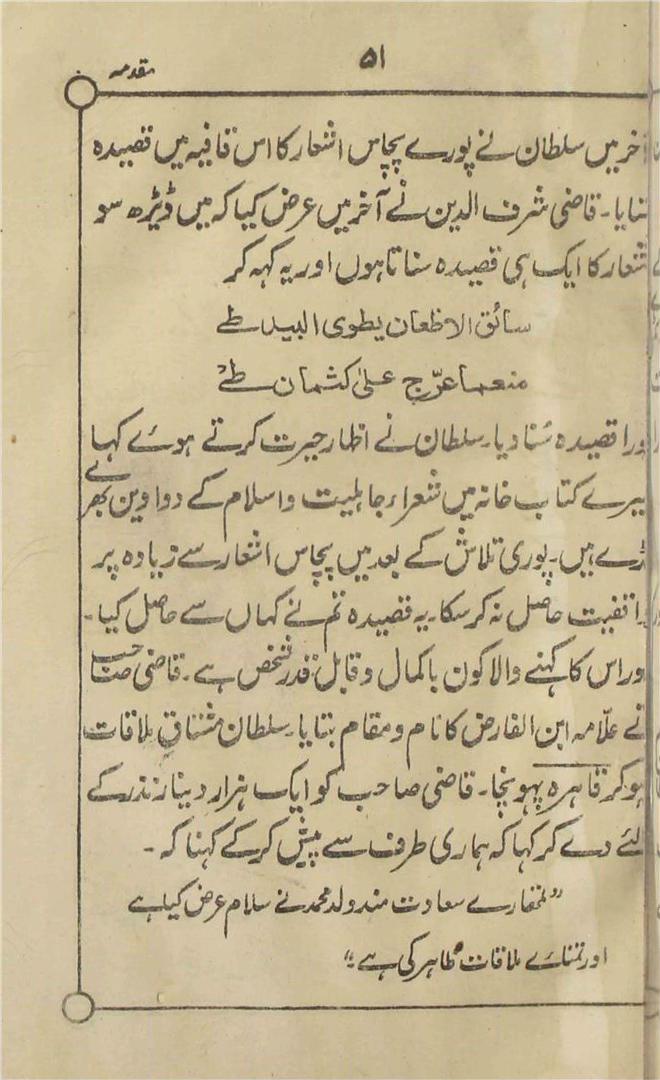 ۵۱
مقدمہ
آخر میں سلطان نے پورے پچاس اشعار کا اس قافیہ میں قصیدہ
سنایا۔ قاضی شرف الدین نے آخر میں عرض کیا کہ میں ڈیڑھ سو
شعار کا ایک ہی قصیدہ سناتا ہوں اور یہ کہہ کر
سائق الاظعان یطوی البید طے
منعما عرّج علیٰ کثمان طے
ورا قصیدہ سُنا دیا۔ سلطان نے اظہار حیرت کرتے ہوئے کہا
میرے کتاب خانہ میں شعراء جاہلیت و اسلام کے دواوین بھرے
پڑے ہیں۔ پوری تلاش کے بعد میں پچاس اشعار سے زیادہ پر
واقفیت حاصل نہ کر سکا۔ یہ قصیدہ تم نے کہاں سے حاصل کیا۔
ور اس کا کہنے والا کون باکمال و قابل قدر شخص ہے۔ قاضی صاحب
نے علّامہ ابن الفارض کا نام و مقام بتایا۔ سلطان مشتاقِ ملاقات
ہوکر قاہرہ پہونچا۔ قاضی صاحب کو ایک ہزار دینار نذر کے
لئے دے کر کہا کہ ہماری طرف سے پیش کرکے کہنا کہ۔
”تمھارے سعادت مند ولد محمد نے سلام عرض کیا ہے
اور تمنائے ملاقات ظاہر کی ہے۔“